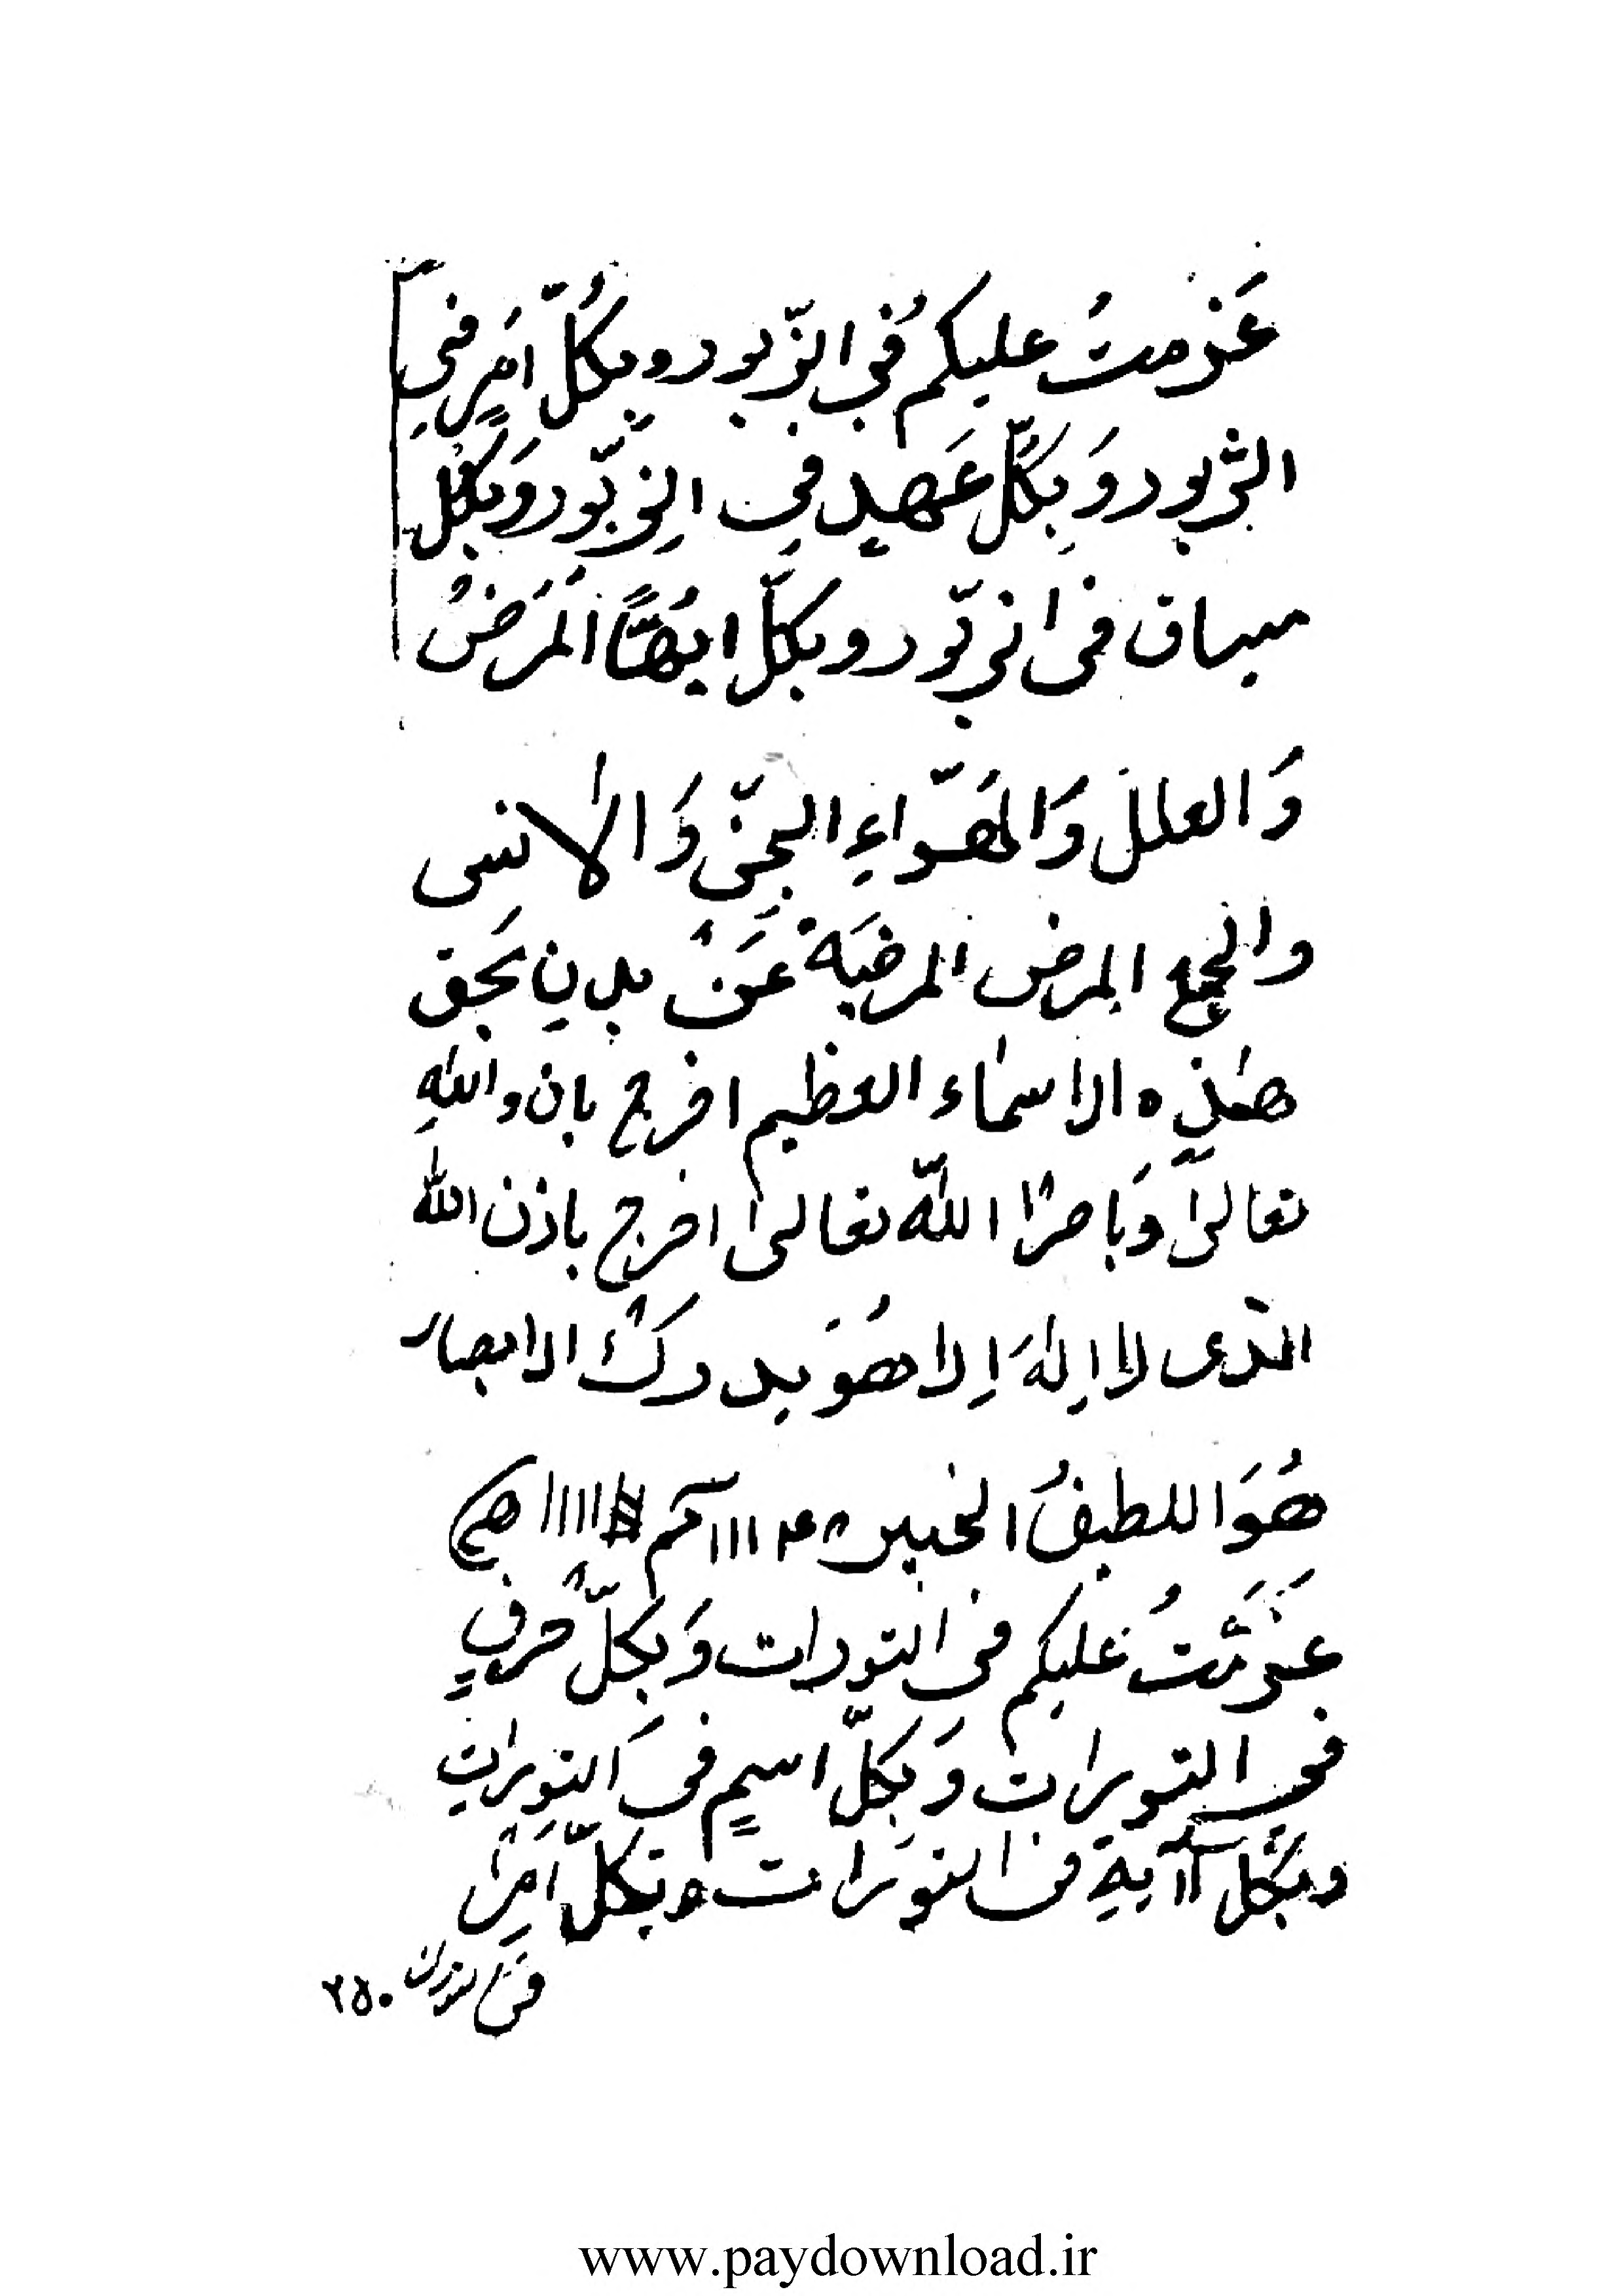 عَزمتُ عليكم في الزّبور وبكُلّ اَمَرٍ فيِ
الزبور وَ بِكلّ عَهدٍ فيِ الزبّور وَبكُل
ميساق في الزبّور وبكلّ ايُهّاً المَرَضُ
وَ العلل وَ الهَوّاءِ الجِنّ وَ الاٰنسی
والجمع المرض المرضیَة عَنْ بدنِ بحَق
هٰذِه الاسمٰاء العظیم اخرج بان واللهِ
تعالیٰ وَبامرْ اللّه تعالیٰ اخرج باذن اللٰه
الّذی لا اِلٰهَ اِلا هُوَ یدرکْ الابصار
هُوَ اللطیفُ الخبیر
عَزَمْتُ عَلیکم في التورات وَبِکلّ حْرفٍ
في التورات وَ بکلّ اسمٍ فی التوراتِ
وبکُل آیةِ فی التوَرات وبکلّ اَمرْ
في التورات ۲۵۰
www.paydownload.ir